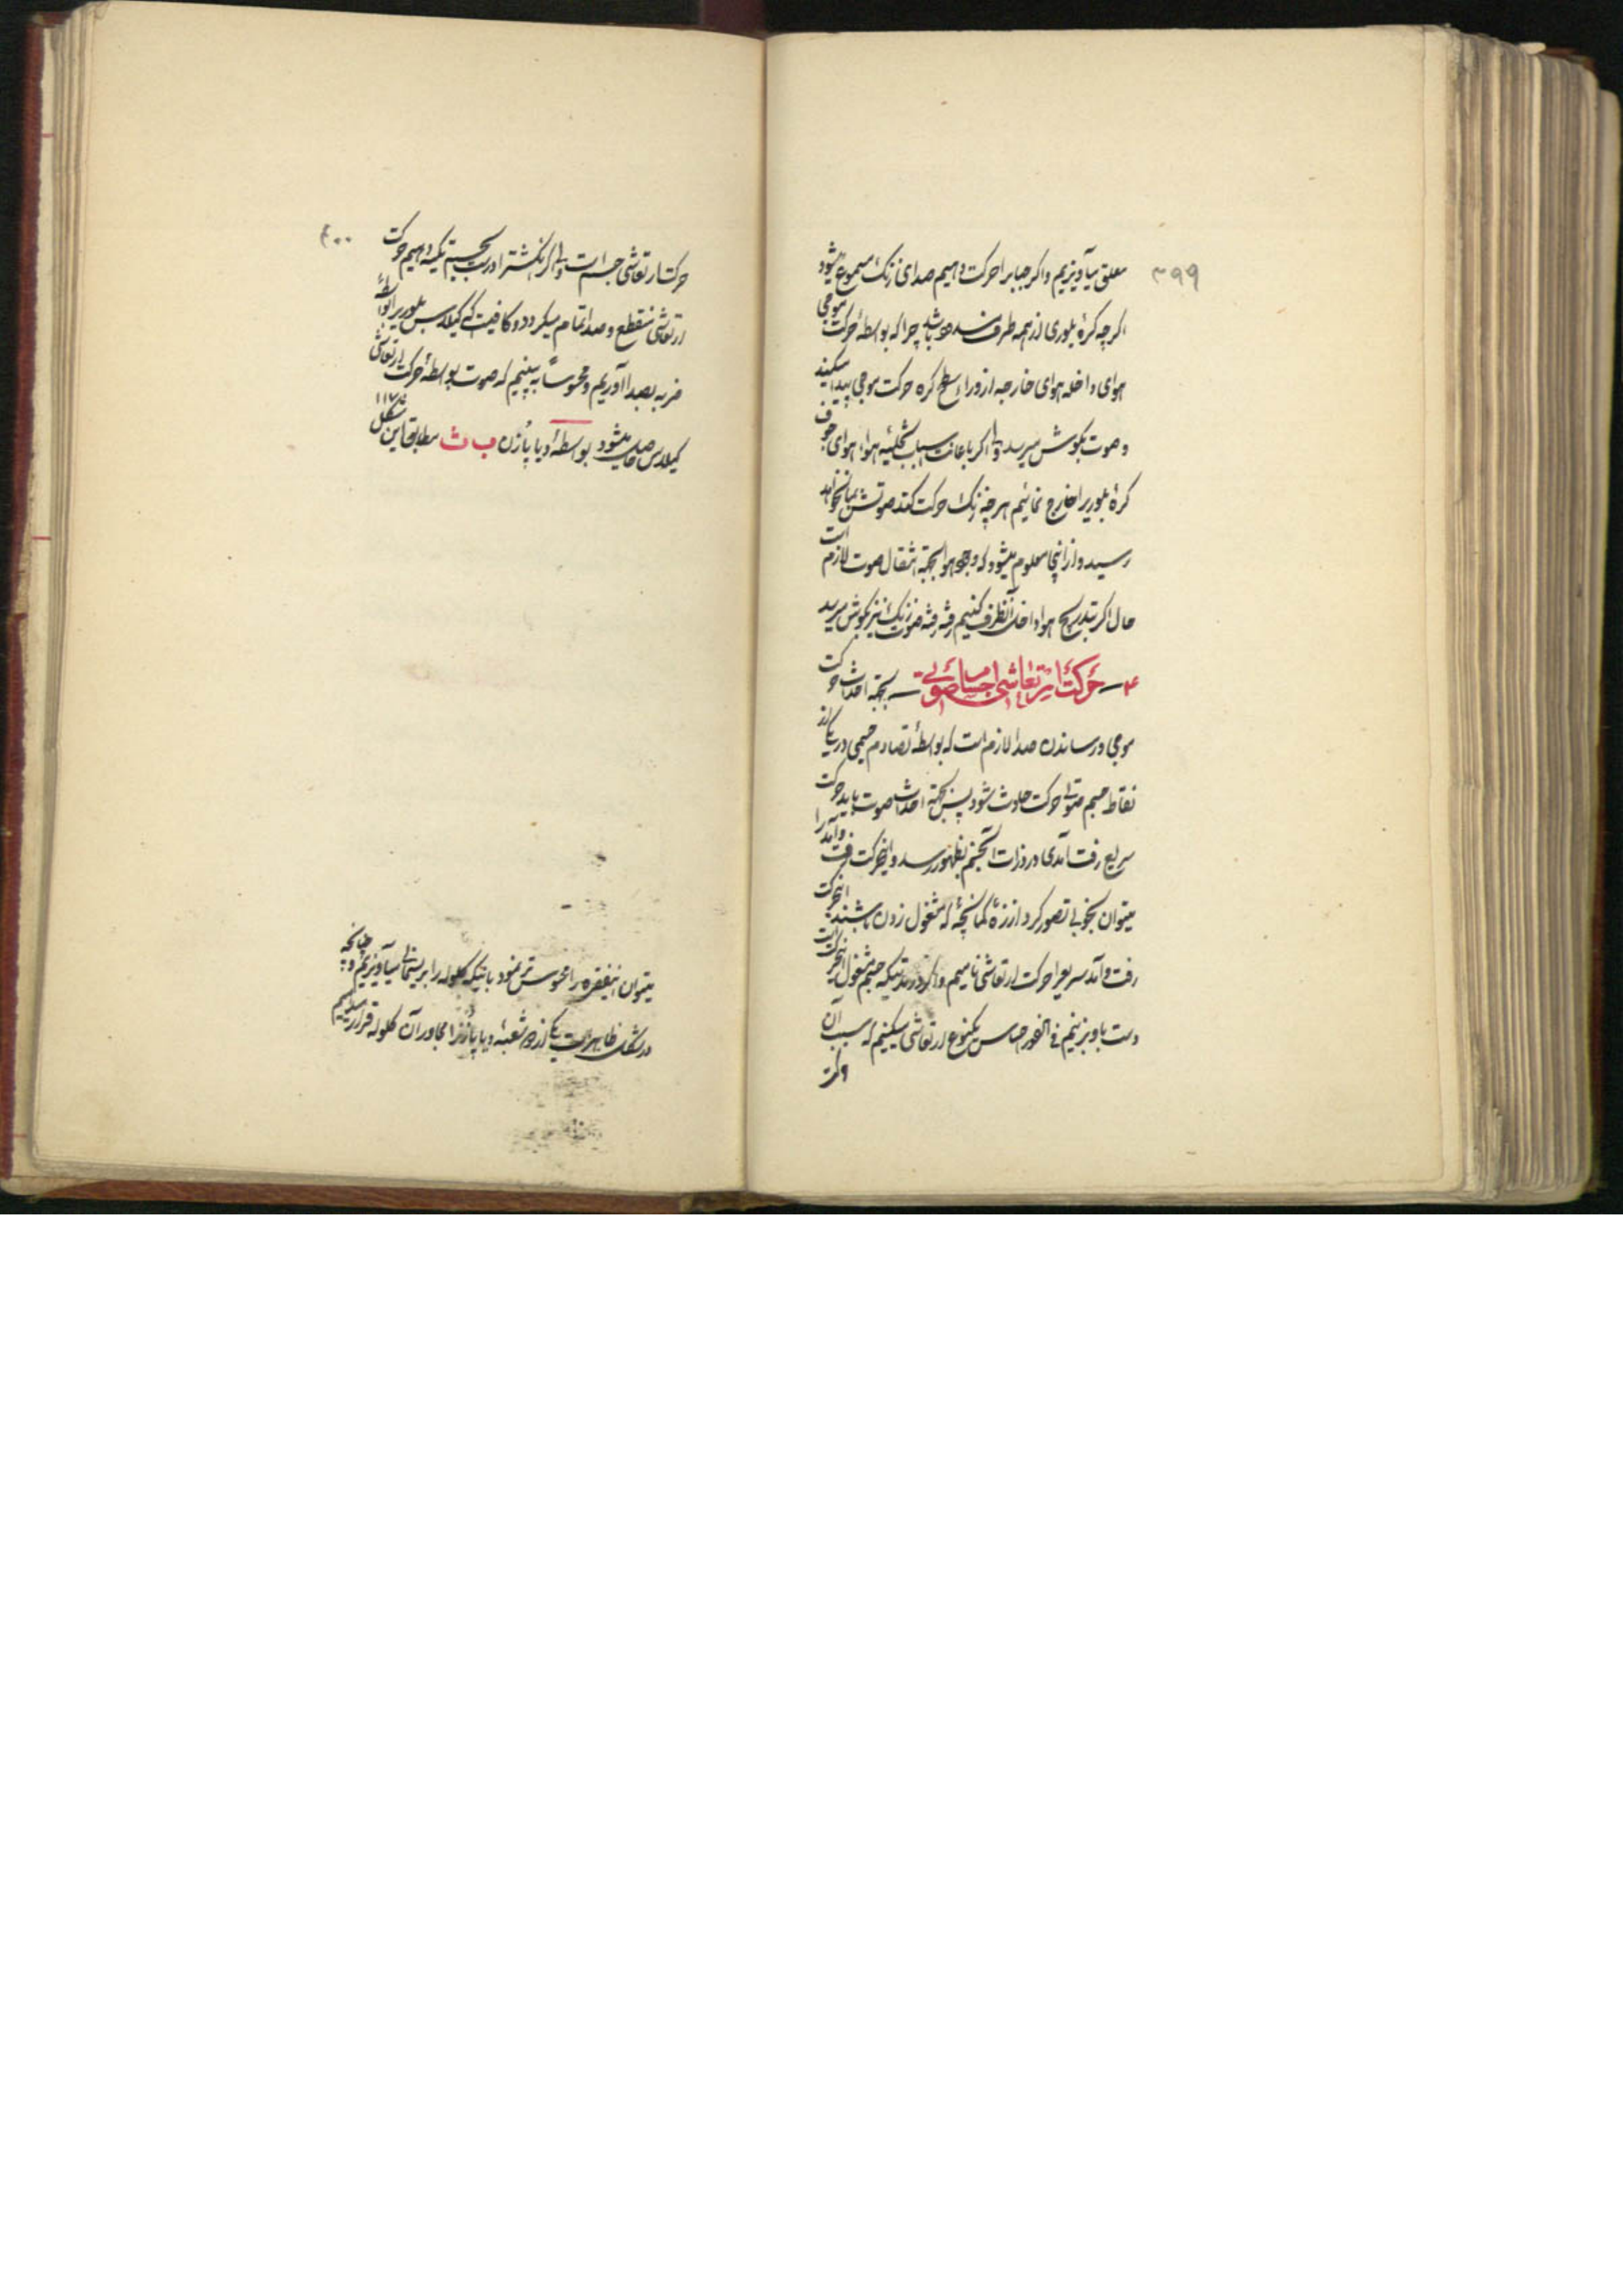 ۳۹۹
معلق میآویزیم و اکر جبابرا حرکت دهیم صدای زنک مسموع میشود
اکرچه کرهٔ بلوری از همه طرف مسدود باشد چرا که بواسطهٔ حرکت موجی
هوای داخله هوای خارجه از وراء سطح کره حرکت موجی پیدا میکند
و صوت بکوش میرسد و اکر باعانت اسباب تخلیهٔ هوا، هوای جوف
کرهٔ بلوریرا خارج نمائیم هرچه زنک حرکت کند صوتش بما نخواهد
رسید و از اینجا معلوم میشود که وجود هوا بجهة انتقال صوت لازم است
حال اکر بتدریج هوا داخل آنظرف کنیم رفته رفته صوت زنک نیز بکوش میرسد
۴ – حرکت ارتعاشی اجسام صوتی – بجهة احداث حرکت
موجی و رساندن صدا لازم است که بواسطهٔ تصادم جسمی در یکی از
نقاط جسم متواتر حرکت حادث شود پس بجهة احداث صوت باید حرکت
سریع رفت آمدی در ذرات آنجسم بظهور رسد و اینحرکت رفت و آمد را
میتوان بخوبی تصور کرد از زه کمانچهٔ که مشغول زدن باشند اینحرکت
رفت و آمد سریعرا حرکت ارتعاشی نامیم و اکر در مدتیکه جسم مشغول اینحرکت است
دست باو بزنیم فی الفور احساس یکنوع ارتعاشی میکنیم که سبب آن
حرکت
۴۰۰
حرکت ارتعاشی جسم است و اکر انکشترا درست بجسم تکیه دهیم حرکت
ارتعاشی منقطع و صدا تمام میکردد و کافیست که کیلاس بلوریرا بواسطهٔ
ضربه بصدا آوریم و محسوساً به بینیم که صوت بواسطهٔ حرکت ارتعاشی
کیلاس حاصل میشود بواسطهٔ دیاپازن ب ث مطابق این شکل ۱۱۷
میتوان اینفقره را محسوس تر نمود باینکه کلوله را بریسمانی میآویزیم و چنانچه
در شکل ظاهر است یکی از دو شعبهٔ دیاپازنرا مجاور آن کلوله قرار میدهیم